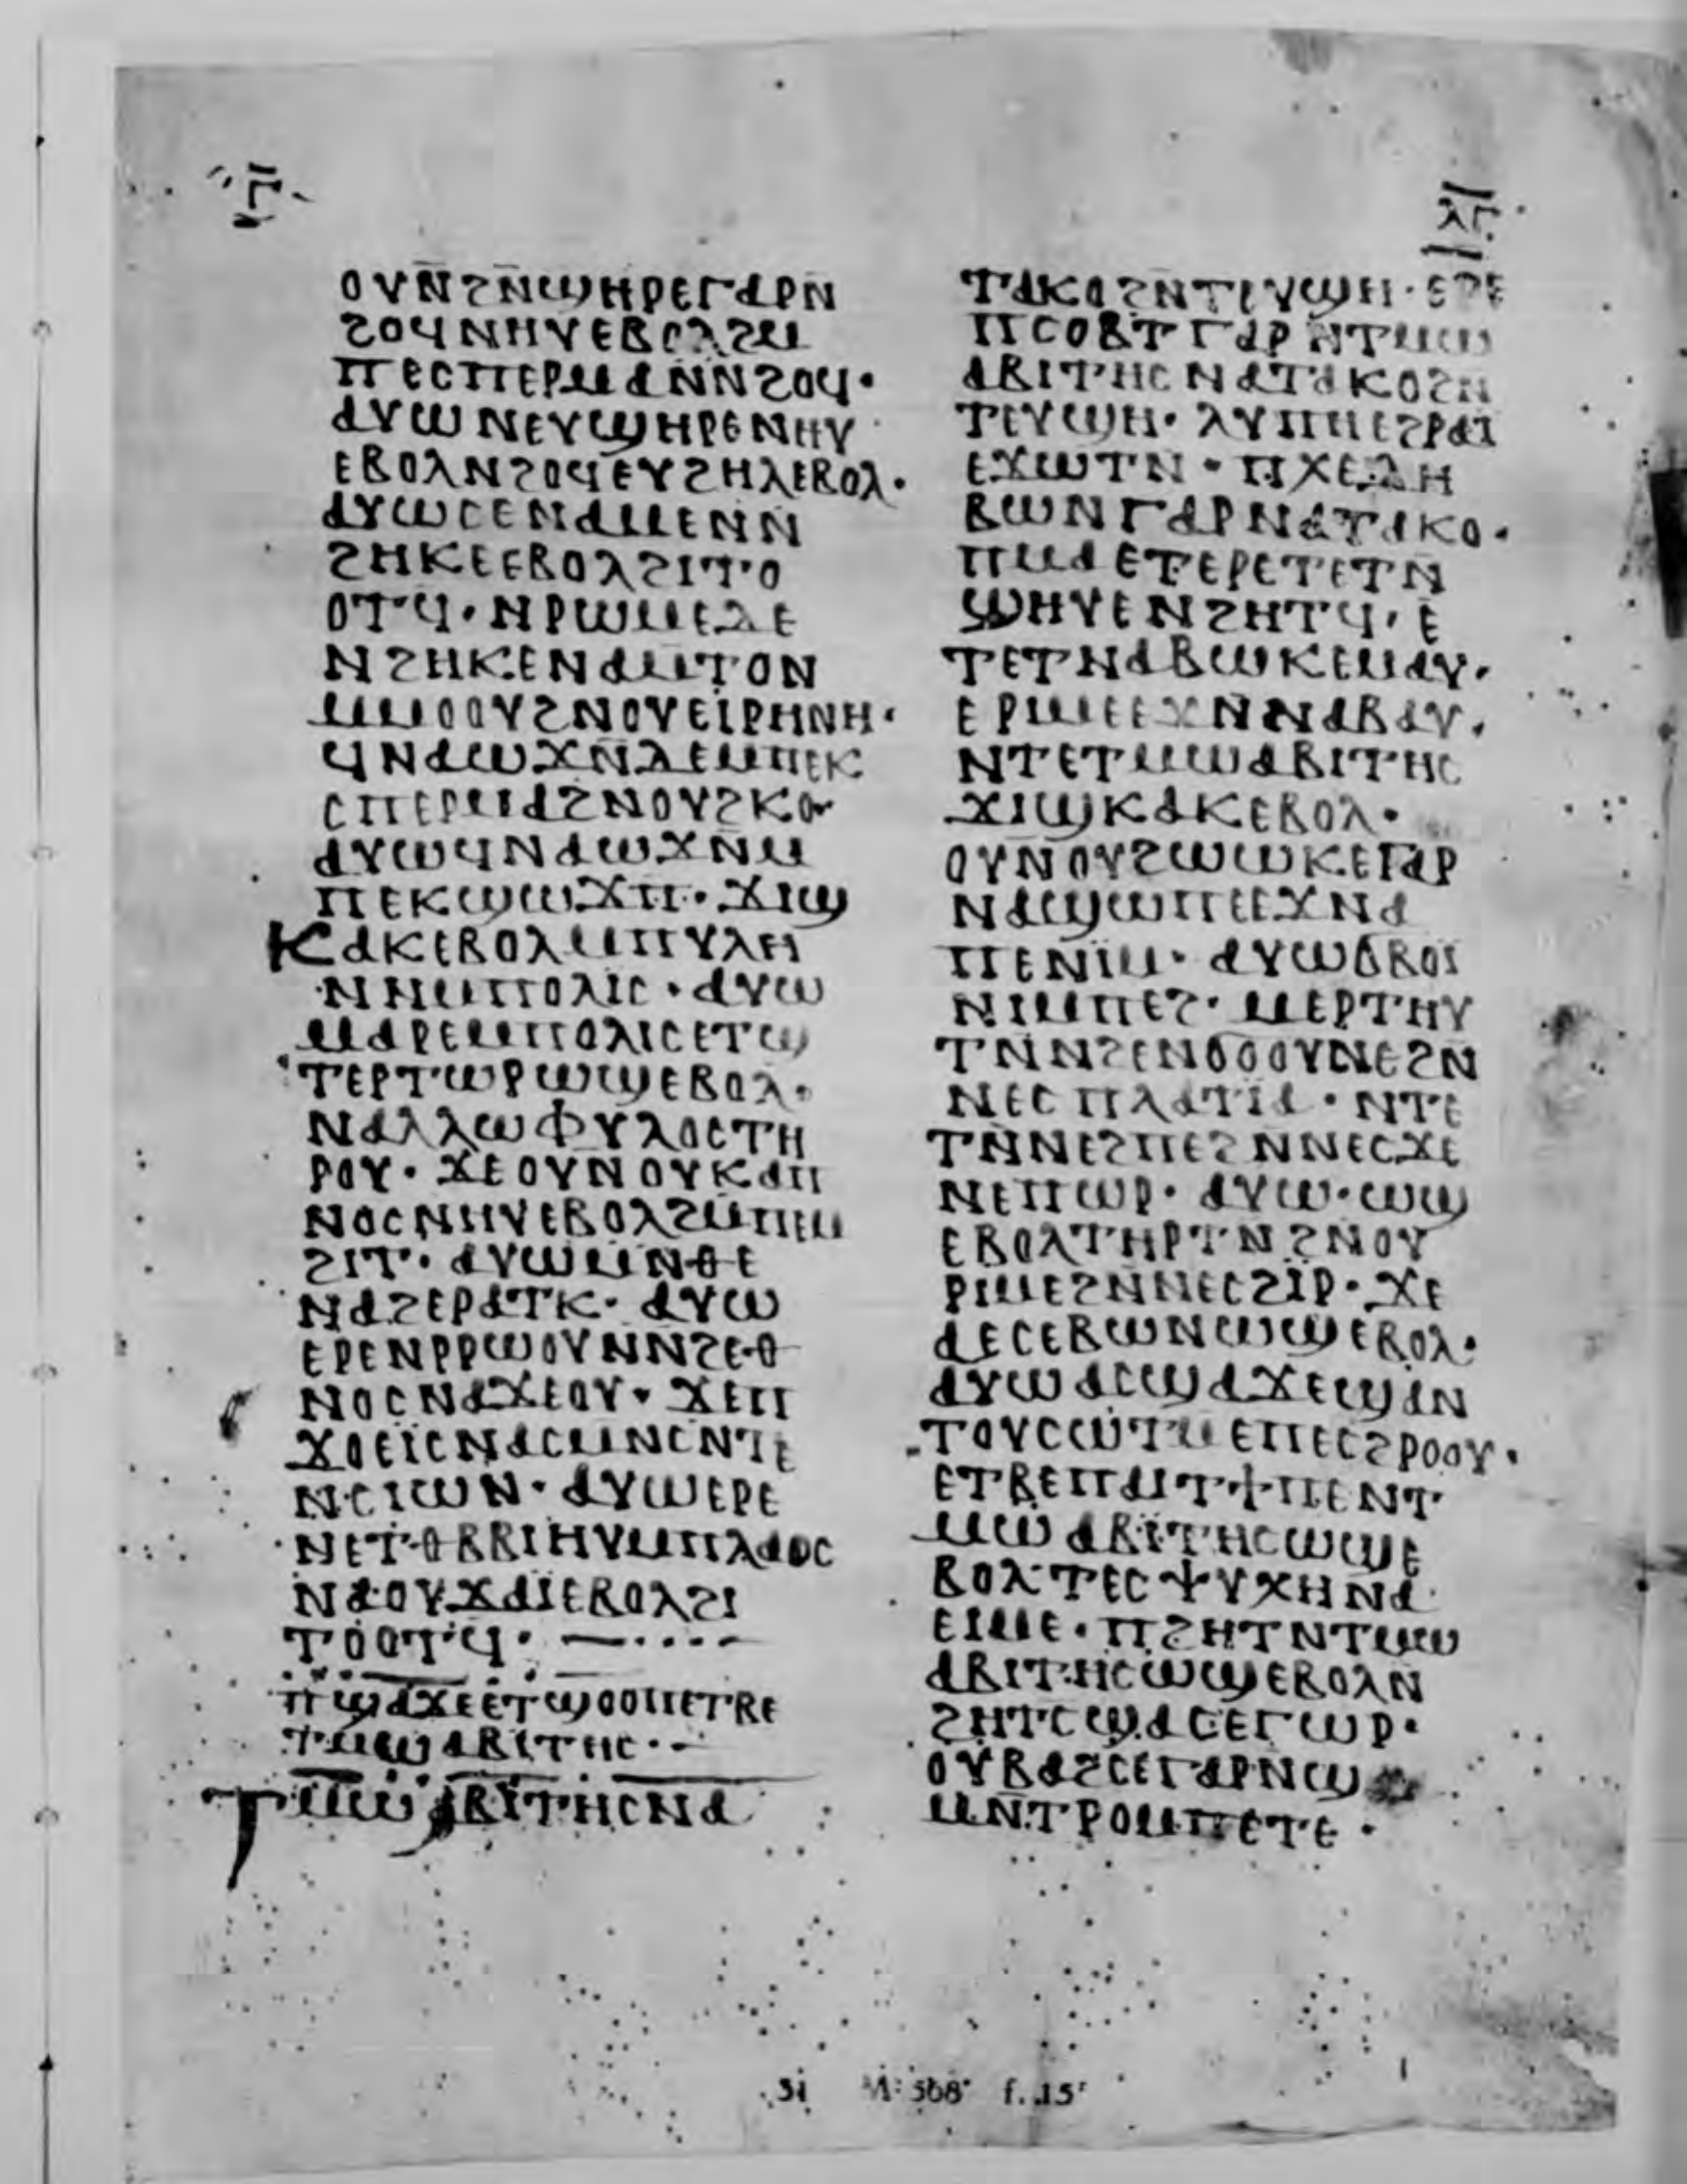 ⲅ̅
ⲗⲅ̅
ⲟⲩⲛ̄ϩⲛ̄ϣⲏⲣⲉⲅⲁⲣⲛ̄
ϩⲟϥⲛⲏⲩⲉⲃⲟⲗϩⲙ
ⲡⲉⲥⲡⲉⲣⲙⲁⲛⲛϩⲟϥ·
ⲁⲩⲱⲛⲉⲩϣⲏⲣⲉⲛⲏⲩ
ⲉⲃⲟⲗⲛϩⲟϥⲉⲩϩⲏⲗⲉⲃⲟⲗ·
ⲁⲩⲱⲥⲉⲛⲁⲙⲉⲛⲛ
ϩⲏⲕⲉⲉⲃⲟⲗϩⲓⲧⲟ
ⲟⲧϥ·ⲛⲣⲱⲙⲉⲇⲉ
ⲛϩⲏⲕⲉⲛⲁⲙⲧⲟⲛ
ⲙⲙⲟⲟⲩϩⲛⲟⲩⲉⲓⲣⲏⲛⲏ·
ϥⲛⲁⲱϫⲛⲇⲉⲙⲡⲉⲕ
ⲥⲡⲉⲣⲙⲁϩⲛⲟⲩϩⲕⲟ
ⲁⲩⲱϥⲛⲁⲱϫⲛⲙ
ⲡⲉⲕϣⲱϫⲡ·ϫⲓϣ
ⲕⲁⲕⲉⲃⲟⲗⲙⲡⲩⲗⲏ
ⲛⲙⲙⲡⲟⲗⲓⲥ·ⲁⲩⲱ
ⲙⲁⲣⲉⲙⲡⲟⲗⲓⲥⲉⲧϣ
ⲧⲉⲣⲧⲱⲣⲱϣⲉⲃⲟⲗ·
ⲛⲁⲗⲗⲱⲫⲩⲗⲟⲥⲧⲏ
ⲣⲟⲩ·ϫⲉⲟⲩⲛⲟⲩⲕⲁⲡ
ⲛⲟⲥⲛⲏⲩⲉⲃⲟⲗϩⲙⲡⲉⲙ
ϩⲓⲧ·ⲁⲩⲱⲙⲛⲑⲉ
ⲛⲁϩⲉⲣⲁⲧⲕ·ⲁⲩⲱ
ⲉⲣⲉⲛⲣⲣⲱⲟⲩⲛⲛϩⲉⲑ
ⲛⲟⲥⲛⲁϫⲉⲟⲩ·ϫⲉⲡ
ϫⲟⲉⲓⲥⲛⲁⲥⲙⲛⲥⲛⲧⲉ
ⲛⲥⲓⲱⲛ·ⲁⲩⲱⲉⲣⲉ
ⲛⲉⲧⲑⲃⲃⲓⲏⲩⲙⲡⲗⲁⲟⲥ
ⲛⲁⲟⲩϫⲁⲓⲉⲃⲟⲗϩⲓ
ⲧⲟⲟⲧϥ·
ⲡϣⲁϫⲉⲉⲧϣⲟⲟⲡⲉⲧⲃⲉ
ⲧⲙⲱⲁⲃⲓⲧⲏⲥ·
ⲧⲙⲱⲁⲃⲓⲧⲏⲥⲛⲁ
ⲧⲁⲕⲟϩⲛⲧⲉⲩϣⲏ·ⲉⲣⲉ
ⲡⲥⲟⲃⲧⲅⲁⲣⲛⲧⲙⲱ
ⲁⲃⲓⲧⲏⲥⲛⲁⲧⲁⲕⲟϩⲛ
ⲧⲉⲩϣⲏ·ⲗⲩⲡⲏⲉϩⲣⲁⲓ
ⲉϫⲱⲧⲛ·ⲡϫⲉⲇⲏ
ⲃⲱⲛⲅⲁⲣⲛⲁⲧⲁⲕⲟ·
ⲡⲙⲁⲉⲧⲉⲣⲉⲧⲉⲧⲛ
ϣⲏⲩⲉⲛϩⲏⲧϥ·ⲉ
ⲧⲉⲧⲛⲁⲃⲱⲕⲉⲙⲁⲩ·
ⲉⲣⲓⲙⲉⲉϫⲛⲛⲁⲃⲁⲩ·
ⲛⲧⲉⲧⲙⲱⲁⲃⲓⲧⲏⲥ
ϫⲓϣⲕⲁⲕⲉⲃⲟⲗ·
ⲟⲩⲛⲟⲩϩⲱⲱⲕⲉⲅⲁⲣ
ⲛⲁϣⲱⲡⲉⲉϫⲛⲁ
ⲡⲉⲛⲓⲙ·ⲁⲩⲱϭⲃⲟⲓ
ⲛⲓⲙⲡⲉϩ·ⲙⲉⲣⲧⲏⲩ
ⲧⲛⲛϩⲉⲛϭⲟⲟⲩⲛⲉϩⲛ
ⲛⲉⲥⲡⲗⲁⲧⲓⲁ·ⲛⲧⲉ
ⲧⲛⲛⲉϩⲡⲉϩⲛⲛⲉⲥϫⲉ
ⲛⲉⲡⲱⲣ·ⲁⲩⲱ·ⲱϣ
ⲉⲃⲟⲗⲧⲏⲣⲧⲛϩⲛⲟⲩ
ⲣⲓⲙⲉϩⲛⲛⲉⲥϩⲓⲣ·ϫⲉ
ⲁⲉⲥⲉⲃⲱⲛⲱϣⲉⲃⲟⲗ·
ⲁⲩⲱⲁⲥϣⲁϫⲉϣⲁⲛ
ⲧⲟⲩⲥⲱⲧⲙⲉⲡⲉⲥϩⲣⲟⲟⲩ·
ⲉⲧⲃⲉⲡⲁⲓⲧϯⲡⲉⲛⲧ
ⲙⲱⲁⲃⲓⲧⲏⲥⲱϣⲉ
ⲃⲟⲗⲧⲉⲥⲯⲩⲭⲏⲛⲁ
ⲉⲓⲙⲉ·ⲡϩⲏⲧⲛⲧⲙⲱ
ⲁⲃⲓⲧⲏⲥⲱϣⲉⲃⲟⲗⲛ
ϩⲏⲧⲥϣⲁⲥⲉⲅⲱⲣ·
ⲟⲩⲃⲁϩⲥⲉⲅⲁⲣⲛϣ
ⲙⲛⲧⲣⲟⲙⲡⲉⲧⲉ·
51 M: 568 f. 15ʳ